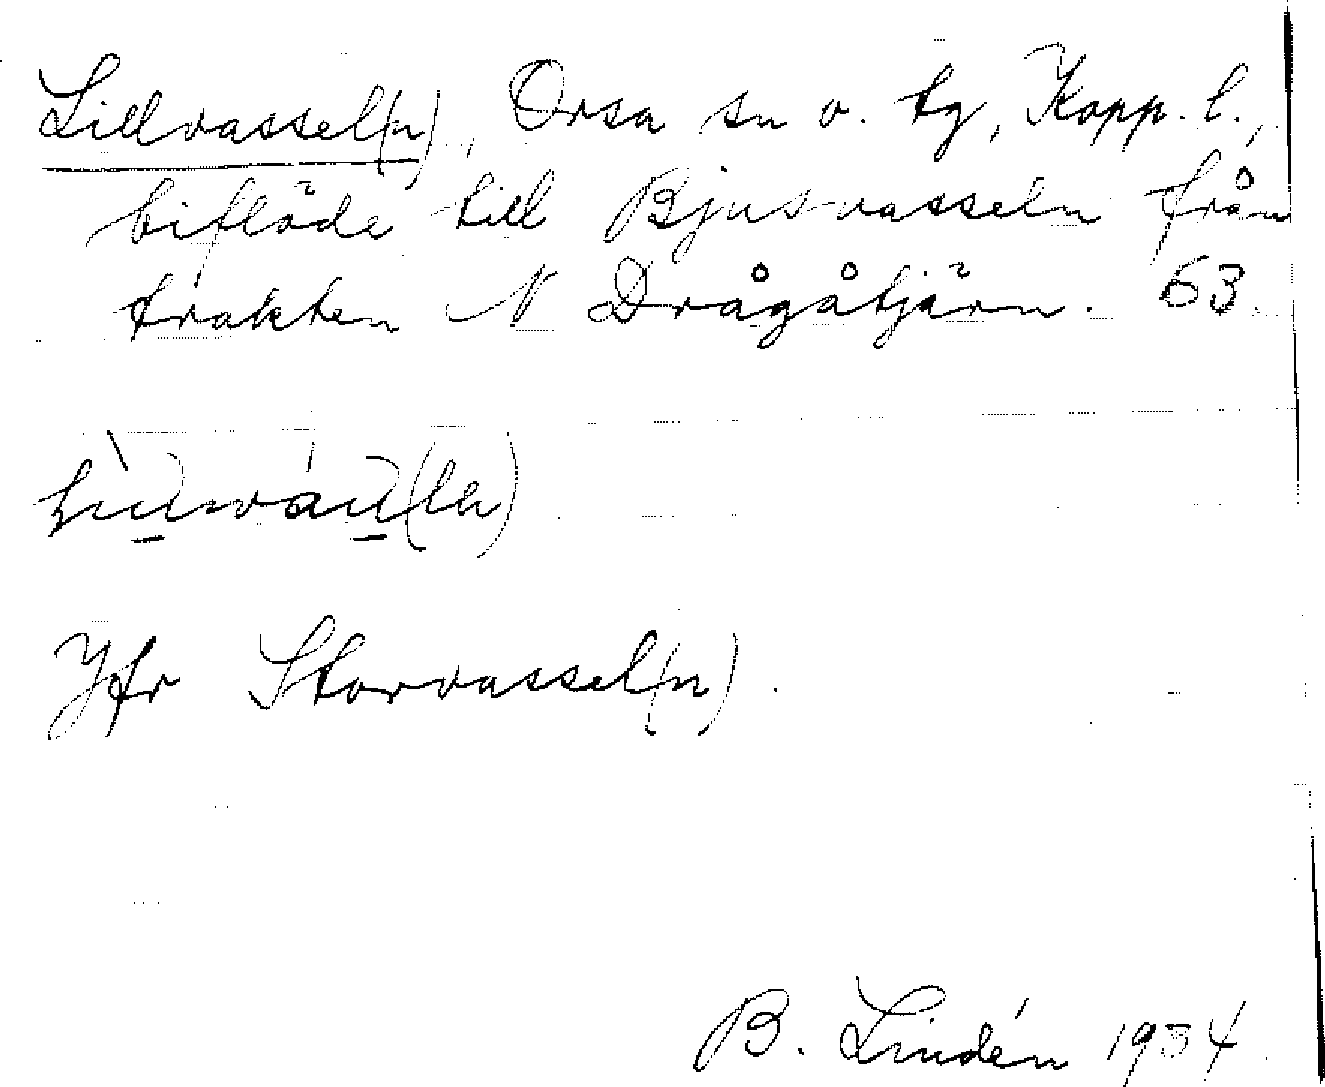 Lillvassel(n), Orsa sn o. tg, Kopp. l.,
biflöde till Bjusvasseln från
trakten N Drågåtjärn. 63.
Jfr Storvassel(n).
B. Lindén 1934